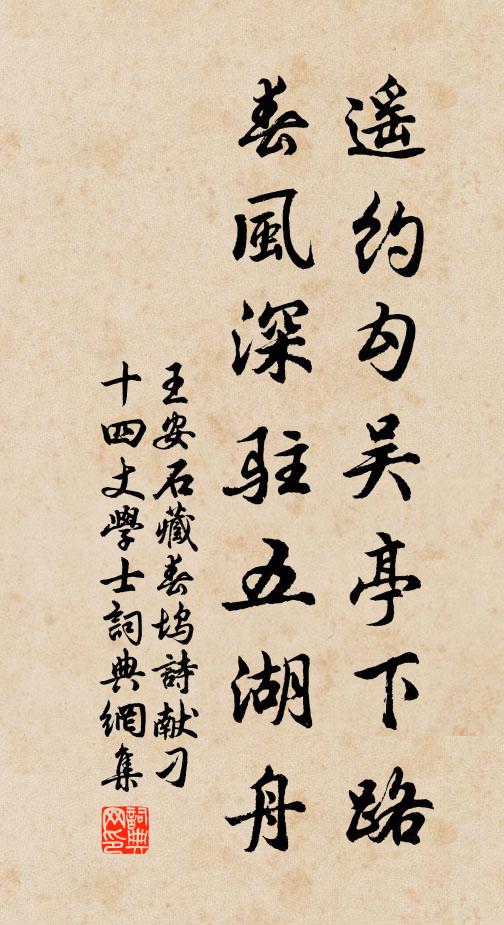 遥約勾吴亭下路
春風深駐五湖舟
王安石藏春塢詩献刁
十四丈學士詞典網集
詞典
网印